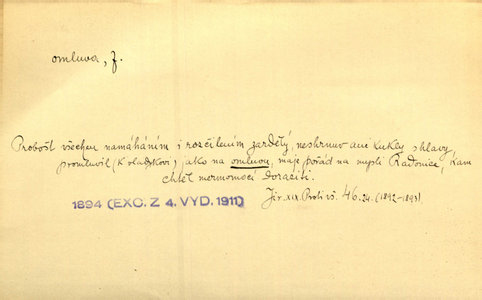 omluva, f.
Probošt všechen namáháním i rozčilením zardělý, neshrnuv ani kukly s hlavy,
promluvil (k vladykovi) jako na omluvu, maje pořád na mysli Radonice, kam
chtěl mermomocí doraziti.
Jir. XIX. Proti vš. 46.24. (1892–1893).
1894 (EXC. Z 4. VYD. 1911)